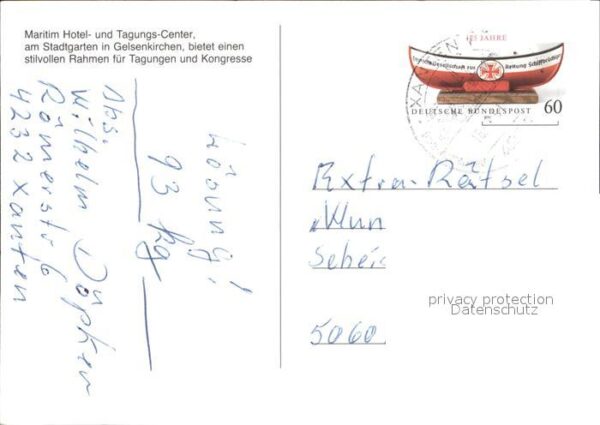 Maritim Hotel- und Tagungs-Center,
am Stadtgarten in Gelsenkirchen, bietet einen
stilvollen Rahmen für Tagungen und Kongresse
Lösung!
93 kg
Abs.
Wilhelm Döpken
Römerstr 6
4232 Xanten
125 JAHRE
Deutsche Gesellschaft zur Rettung Schiffbrüchiger
DEUTSCHE BUNDESPOST 60
XANTEN
Extra-Rätsel
5060
privacy protection
Datenschutz